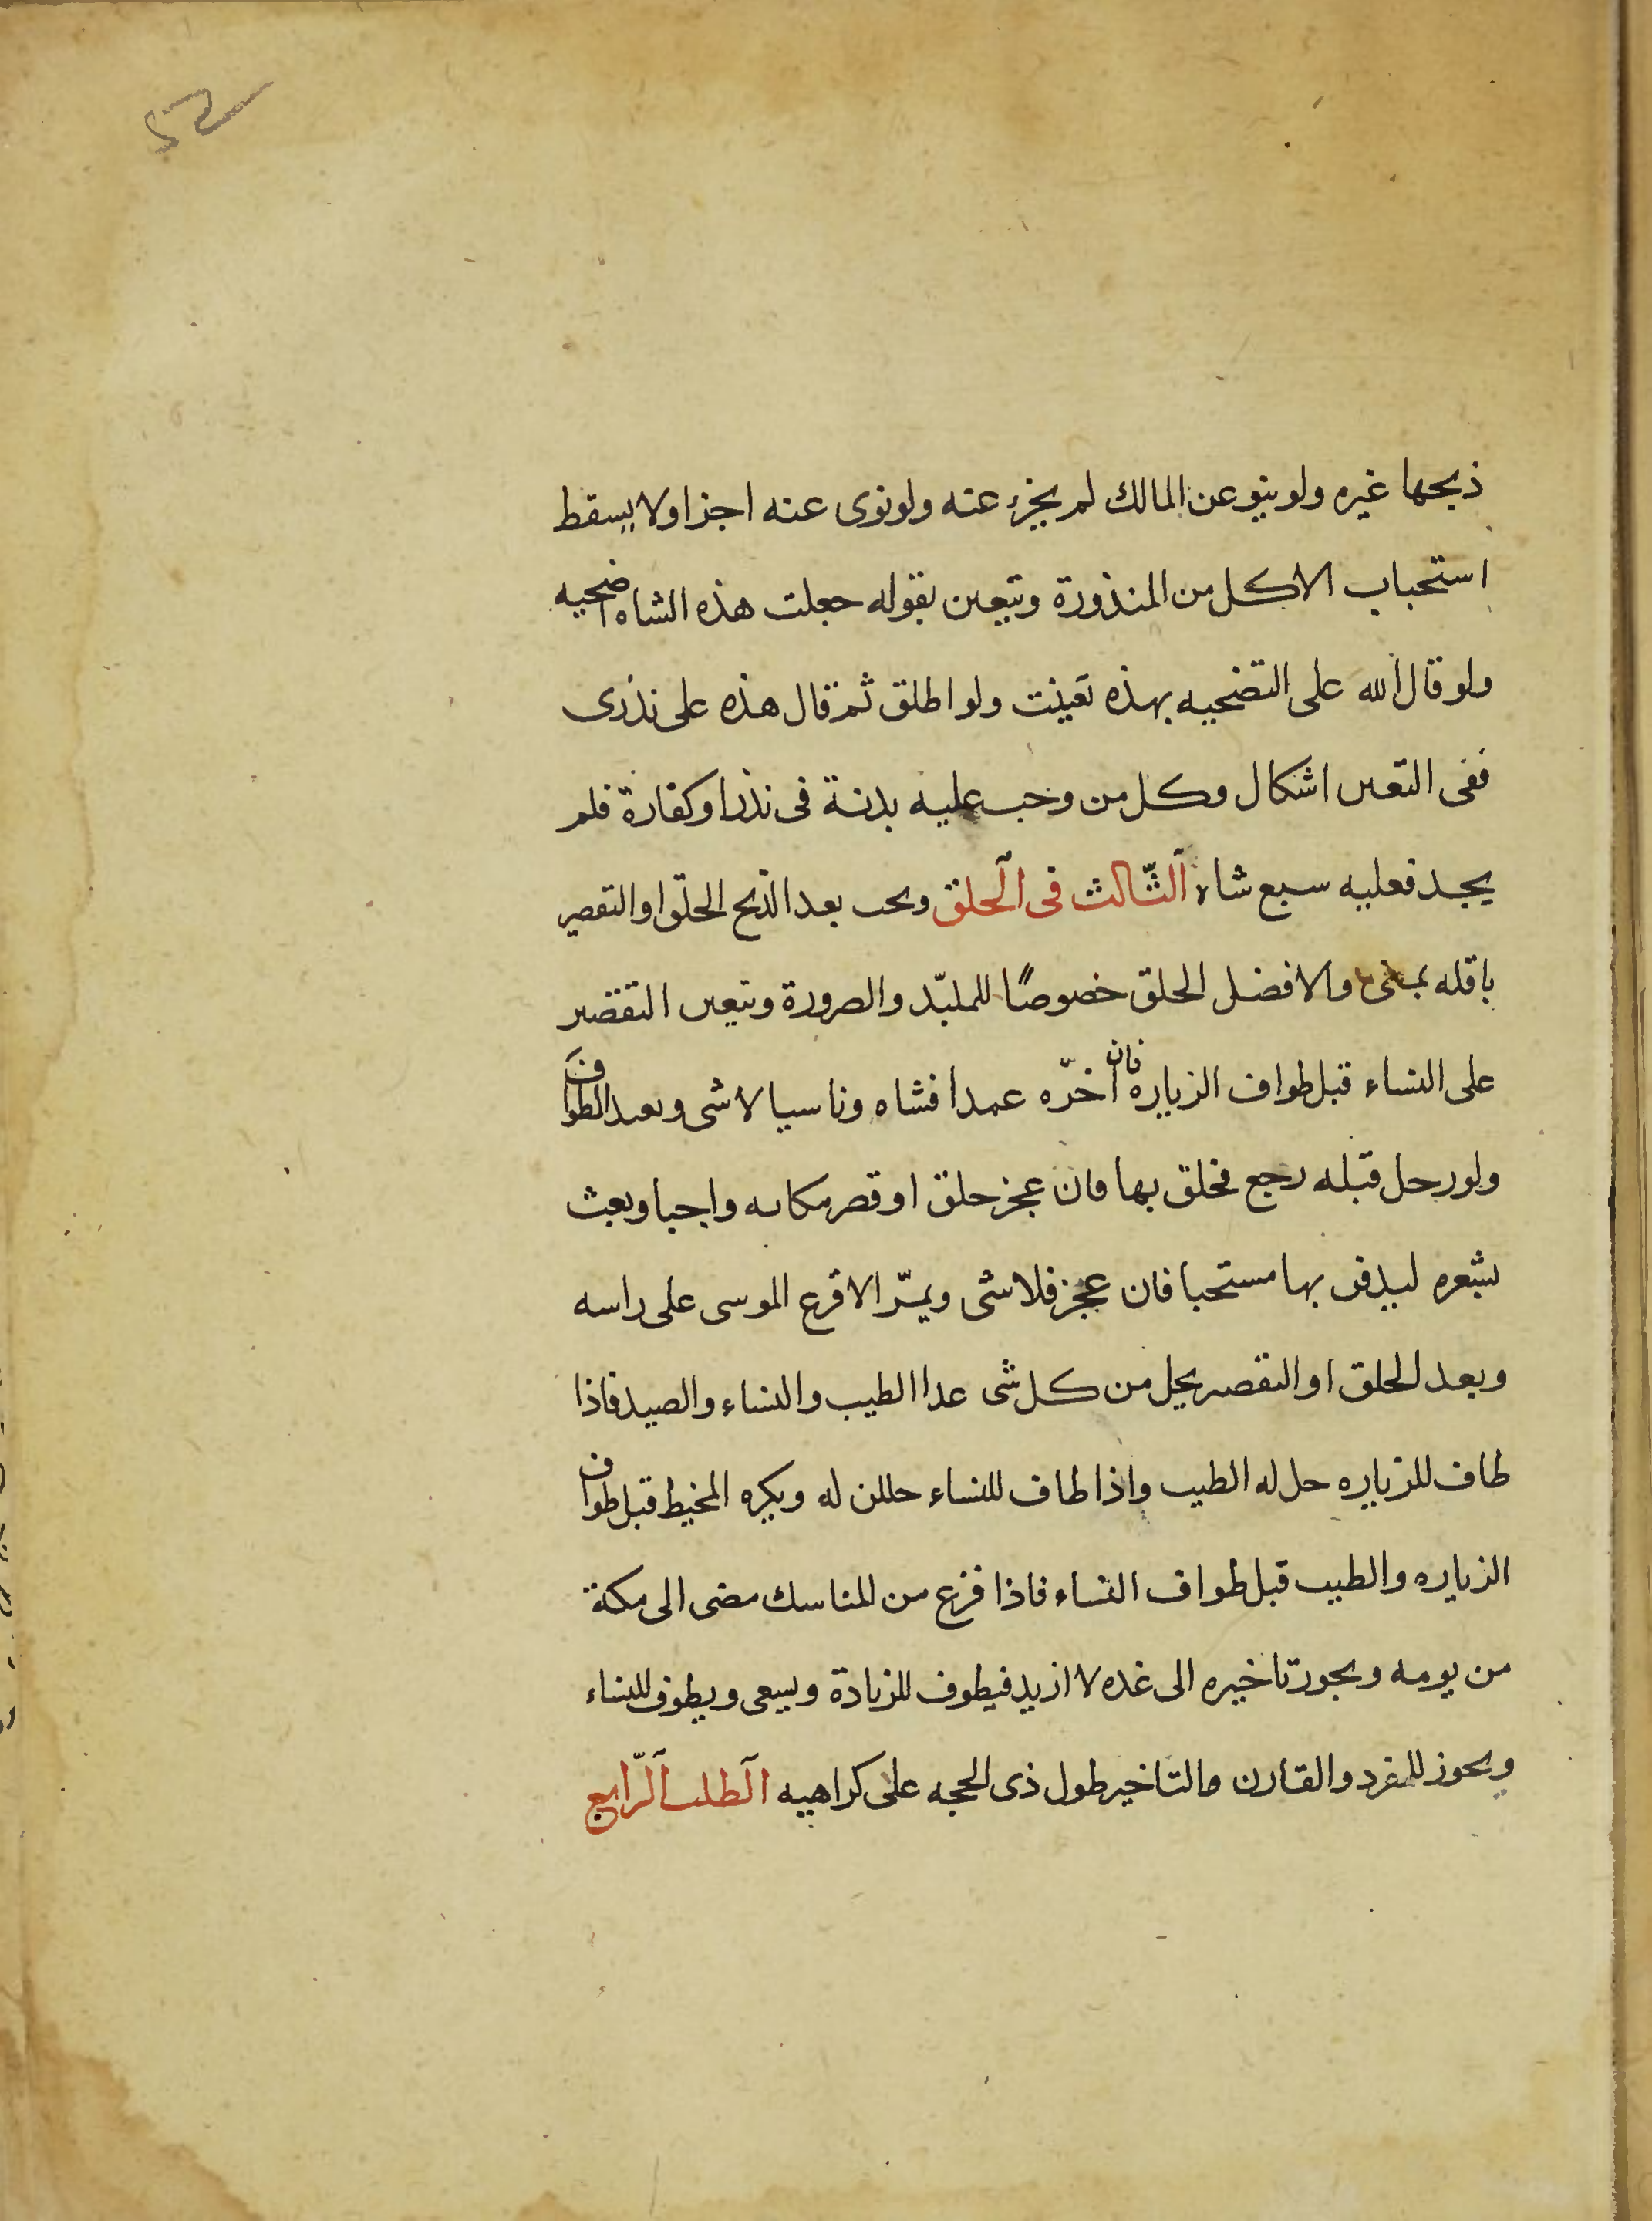 ذبحها غيره ولو ينو عن المالك لم يجزء عنه ولو نوى عنه اجزا ولا يسقط
استحباب الاكل من المنذورة وتتعين بقوله جعلت هذه الشاه اضحيه
ولو قال لله على التضحيه بهذه تعينت ولو اطلق ثم قال هذه على نذرى
ففى التعين اشكال وكل من وجب عليه بدنة فى نذر او كفارة فلم
يجد فعليه سبع شاه الثّالث فى الحلق ويجب بعد الذبح الحلق او التقصير
باقله بمنى والافضل الحلق خصوصًا للملبّد والصرورة ويتعين التقصير
على النساء قبل طواف الزياره فان اخرّه عمدا فشاه وناسيا لا شى ويعيد الطواف
ولو رحل قبله رجع فحلق بها فان عجز حلق او قصر مكانه واجبا وبعث
بشعره ليدفن بها مستحبا فان عجز فلا شى ويمرّ الاقرع الموسى على راسه
وبعد الحلق او التقصير يحل من كل شى عدا الطيب والنساء والصيد فاذا
طاف للزياره حل له الطيب واذا طاف للنساء حللن له ويكره المخيط قبل طواف
الزياره والطيب قبل طواف النساء فاذا فرغ من المناسك مضى الى مكة
من يومه ويجوز تاخيره الى غده لا ازيد فيطوف للزيادة ويسعى ويطوف للنساء
ويجوز للمفرد والقارن مالتاخير طول ذى الحجه على كراهيه الطلب الرّابع